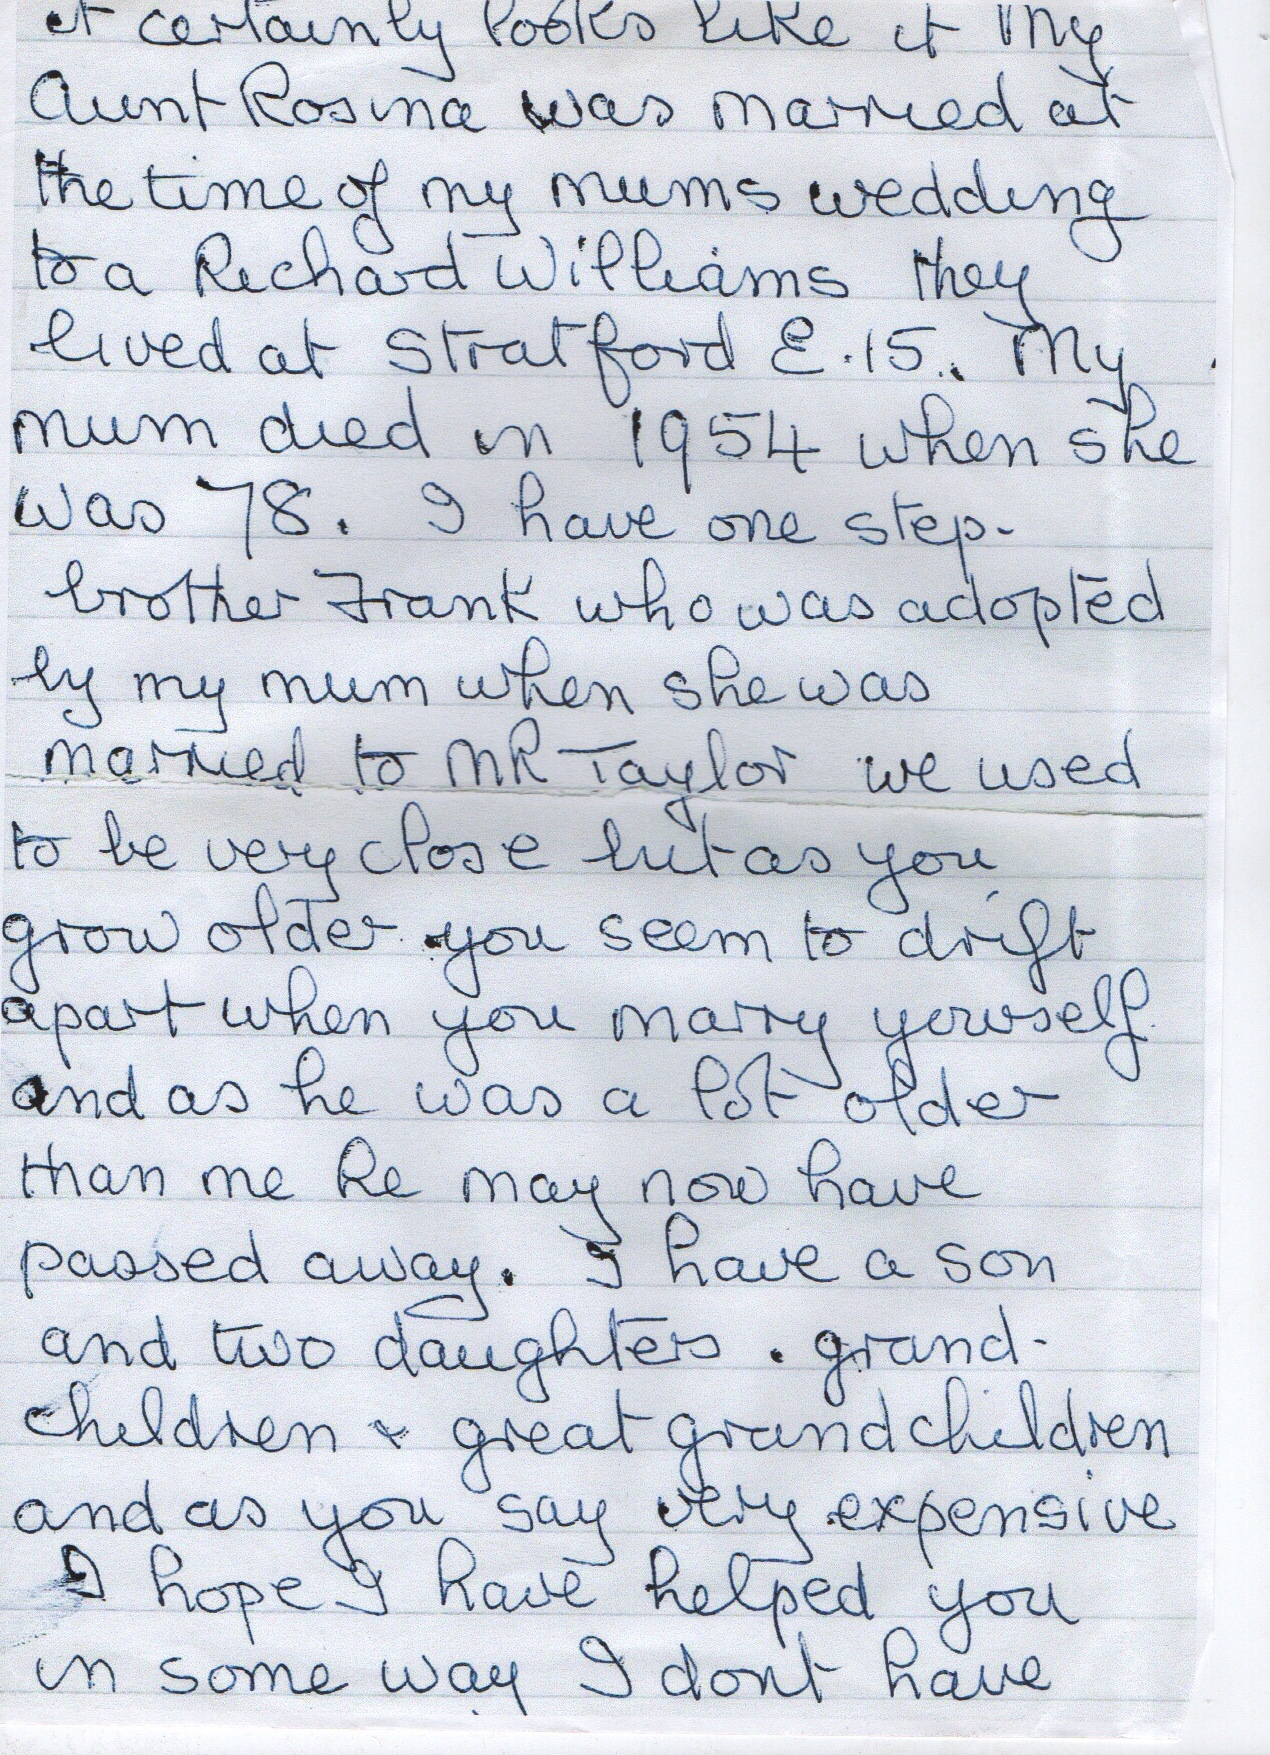 it certainly looks like it My
Aunt Rosina was married at
the time of my mums wedding
to a Richard Williams they
lived at Stratford E.15.. My
mum died in 1954 when she
was 78. I have one step-
brother Frank who was adopted
by my mum when she was
married to MR Taylor we used
to be very close but as you
grow older you seem to drift
apart when you marry yourself
and as he was a lot older
than me he may now have
passed away. I have a son
and two daughters. grand-
children & great grandchildren
and as you say very expensive
I hope I have helped you
in some way I dont have